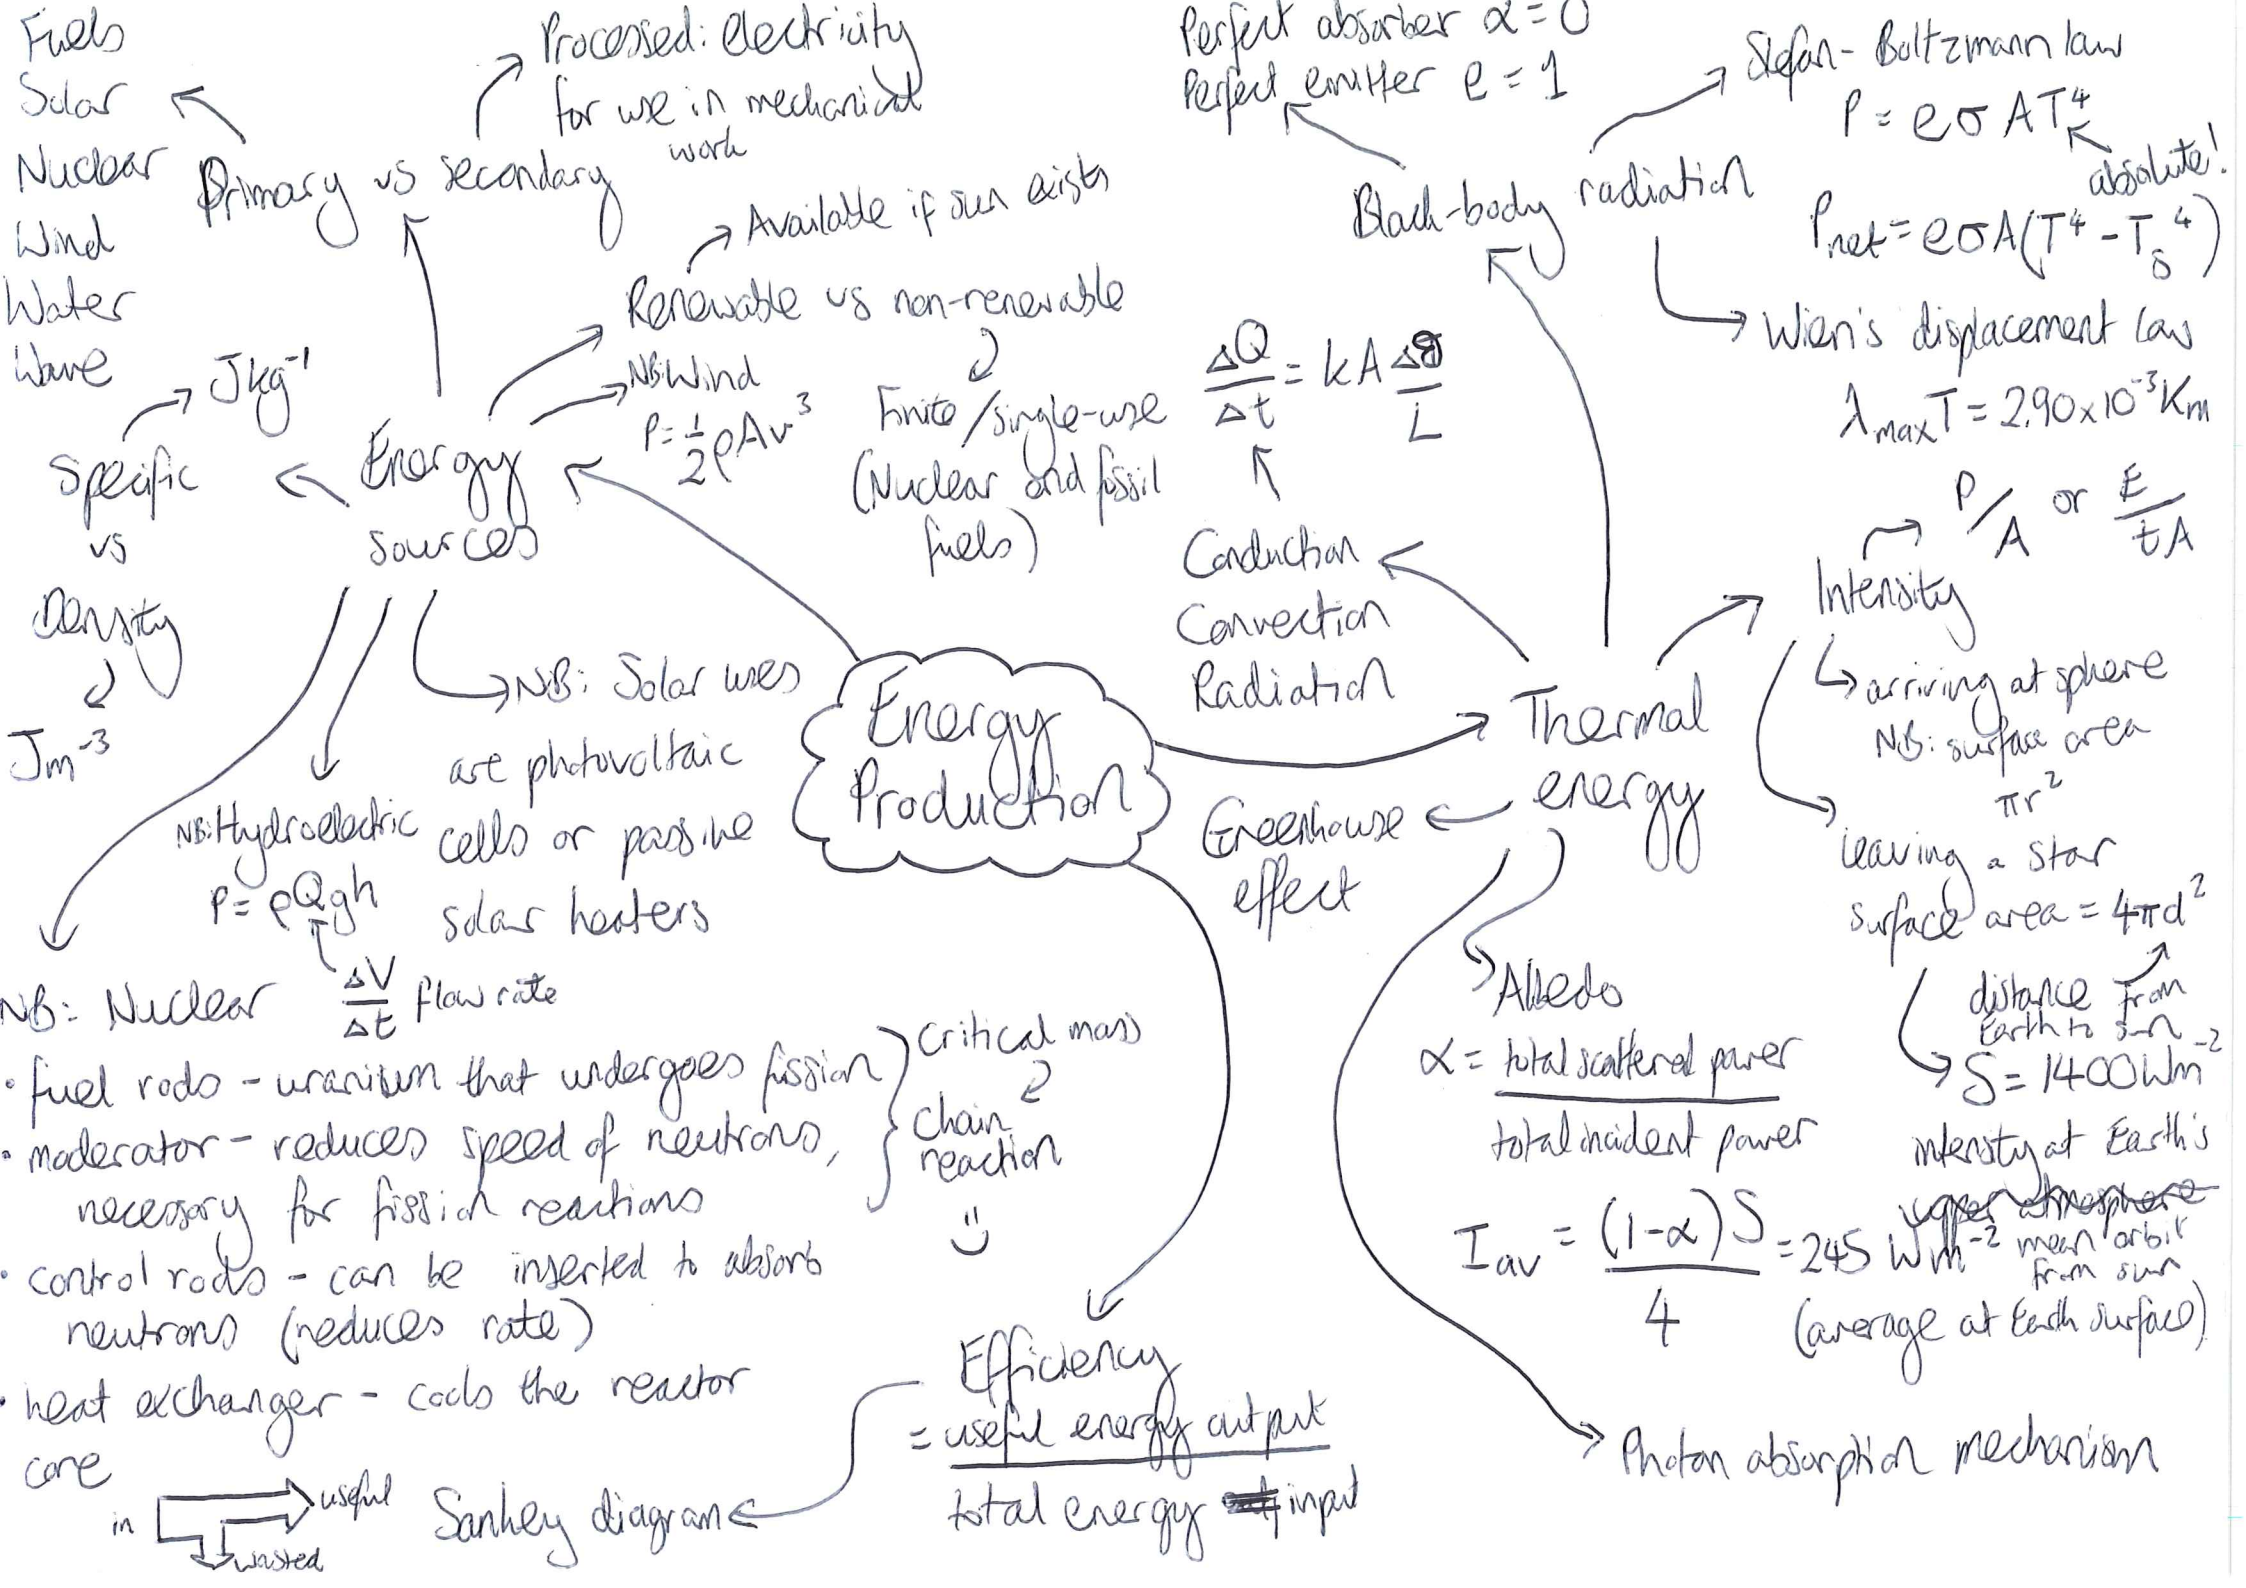 Fuels
Solar
Nuclear
Wind
Water
Wave
Primary vs secondary
Processed: electricity
for use in mechanical
work
Available if sun exists
Renewable vs non-renewable
Finite/single-use
(Nuclear and fossil
fuels)
NB: Wind
P = 1/2 ρAv³
Energy
sources
Specific
vs
Density
Jkg⁻¹
Jm⁻³
NB: Solar uses
are photovoltaic
cells or passive
solar heaters
NB: Hydroelectric
P = ρQgh
ΔV/Δt flow rate
NB: Nuclear
• fuel rods - uranium that undergoes fission
• moderator - reduces speed of neutrons,
necessary for fission reactions
• control rods - can be inserted to absorb
neutrons (reduces rate)
• heat exchanger - cools the reactor
core
Critical mass
chain
reaction
Energy
Production
Efficiency
= useful energy output
total energy input
Sankey diagram
in
useful
wasted
Thermal
energy
Conduction
Convection
Radiation
ΔQ/Δt = kA Δθ/L
Black-body radiation
Perfect absorber α = 0
Perfect emitter e = 1
Stefan-Boltzmann law
P = eσAT⁴
absolute!
Pnet = eσA(T⁴ - Ts⁴)
Wien's displacement law
λmaxT = 2.90 x 10⁻³ Km
Intensity
P/A or E/tA
arriving at sphere
NB: surface area
πr²
leaving a star
surface area = 4πd²
distance from
Earth to sun
S = 1400 Wm⁻²
intensity at Earth's
upper atmosphere
mean orbit
from sun
Greenhouse
effect
Albedo
α = total scattered power
total incident power
Iav = (1-α)S/4 = 245 Wm⁻²
(average at Earth surface)
Photon absorption mechanism